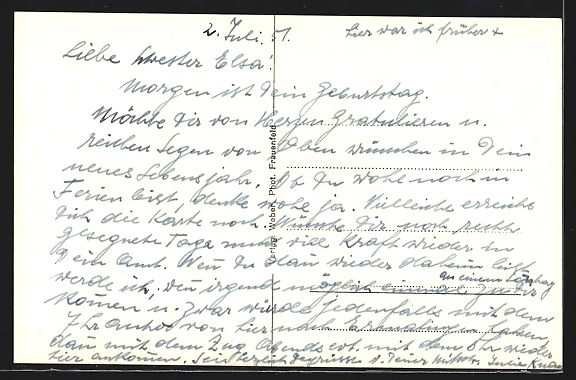 2. Juli. 51.
hier war ich früher +
Liebe Schwester Elsa!
Morgen ist Dein Geburtstag.
Möchte Dir von Herzen Gratulieren u.
reichen Segen von Oben wünschen in Dein
neues Lebensjahr. Ob Du wohl noch in
Ferien bist, denke wohl ja. Vielleicht erreicht
Dich die Karte noch. Wünsche Dir noch recht
gesegnete Tage und viel Kraft wieder in
Dein Amt. Wen Du dan wieder daheim bist
werde ich, wen irgend möglich einmal an einem Sonntag zu Dir
kommen u. zwar würde jedenfalls mit dem
Uhr Auto von hier nach fahren
dan mit dem Zug Abends evt. mit dem 8 Uhr wieder
hier ankommen. Sei herzlich gegrüsst v. Deiner Julie
Verlag Walter, Phot. Frauenfeld